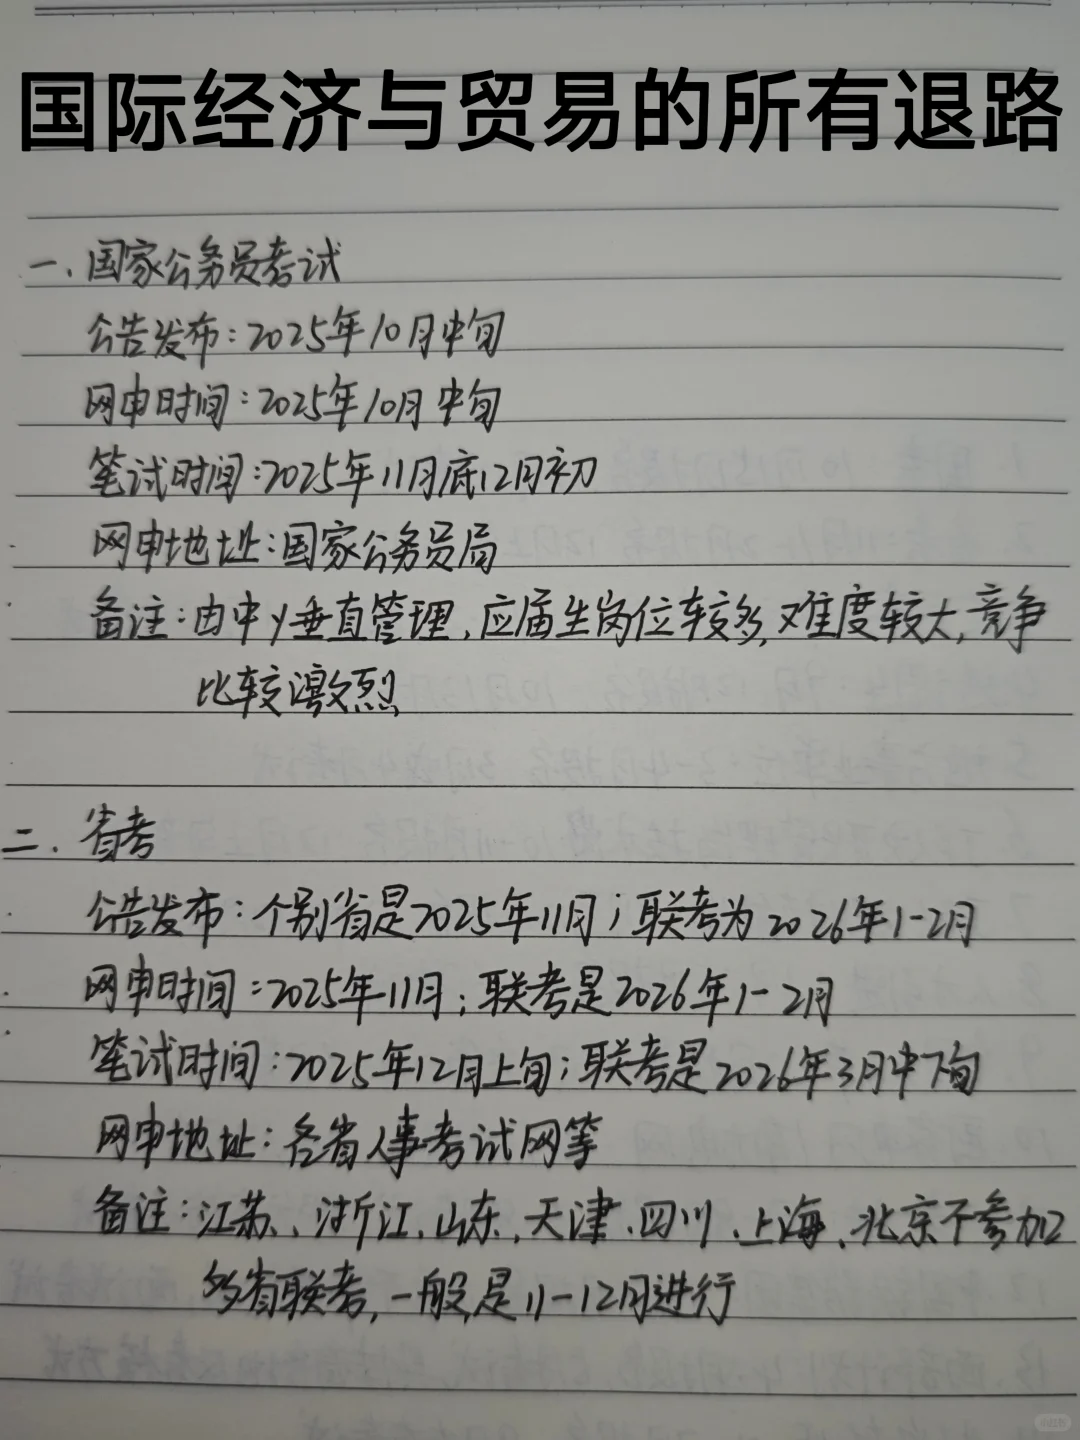 国际经济与贸易的所有退路
一.国家公务员考试
公告发布:2025年10月中旬
网申时间:2025年10月中旬
笔试时间:2025年11月底12月初
网申地址:国家公务员局
备注:由中y垂直管理,应届生岗位较多,难度较大,竞争
比较激烈
二.省考
公告发布:个别省是2025年11月;联考为2026年1-2月
网申时间:2025年11月;联考是2026年1-2月
笔试时间:2025年12月上旬;联考是2026年3月中下旬
网申地址:各省人事考试网等
备注:江苏、浙江、山东、天津、四川、上海、北京不参加
多省联考,一般是11-12月进行
小红书